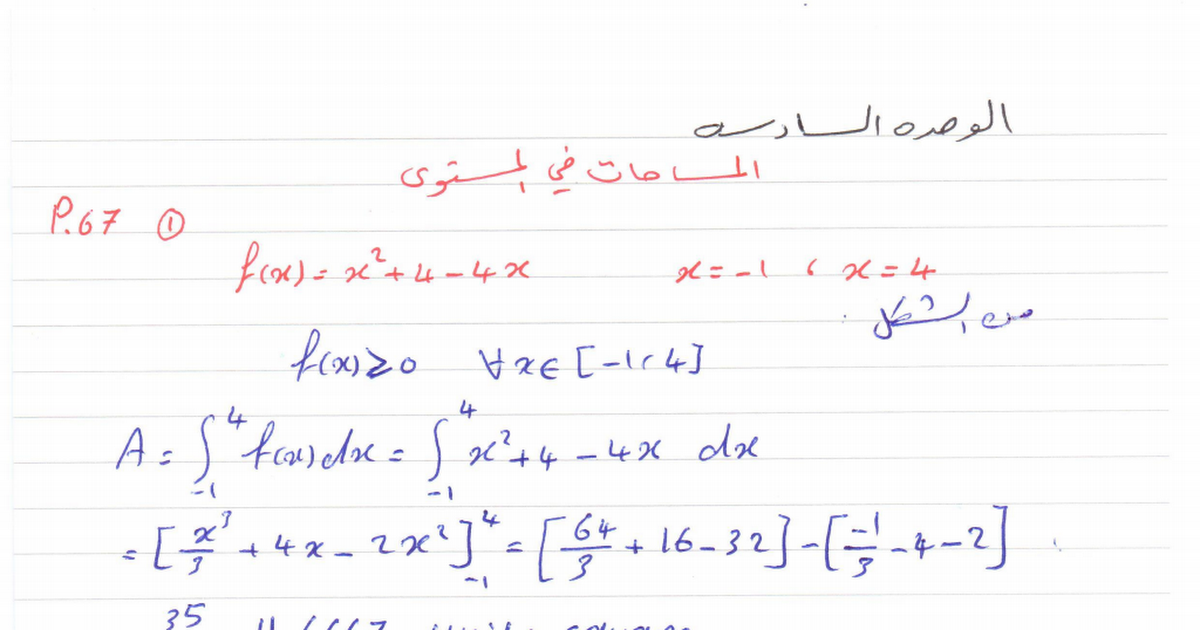 الوحده السادسه
المساحات في المستوى
P.67 ①
f(x) = x² + 4 - 4x x = -1 ، x = 4
من الشكل
f(x) ≥ 0 ∀ x ∈ [-1، 4]
A = ∫₋₁⁴ f(x) dx = ∫₋₁⁴ x² + 4 - 4x dx
= [x³/3 + 4x - 2x²]₋₁⁴ = [64/3 + 16 - 32] - [-1/3 - 4 - 2]
35